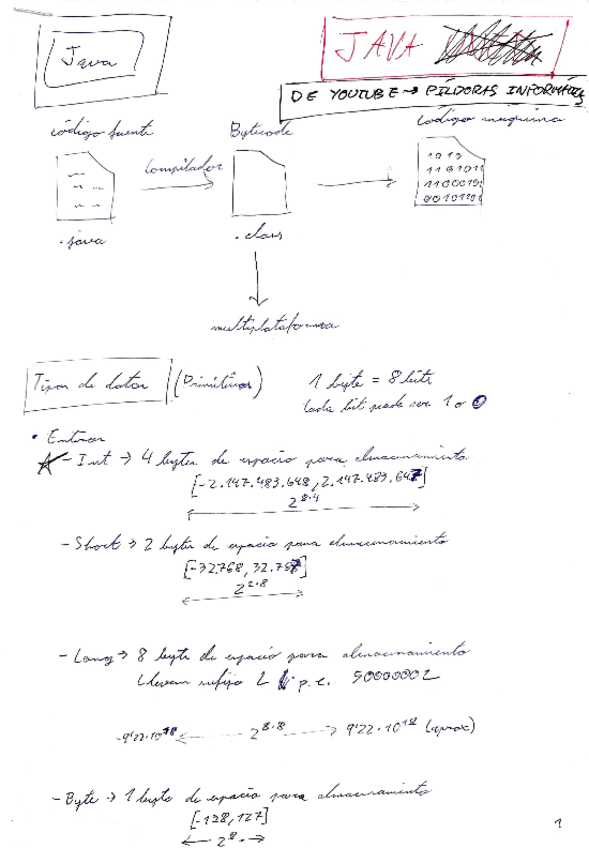 Java
JAVA
DE YOUTUBE → PÍLDORAS INFORMÁTICAS
código fuente
Bytecode
código maquina
Compilador
1010
1101011
1100010
0010110
.java
.class
multiplataforma
Tipos de datos (Primitivos)
1 byte = 8 bits
Cada bit puede ser 1 o 0
• Enteros
- Int → 4 bytes de espacio para almacenamiento
[-2.147.483.648, 2.147.483.647]
2^8·4
- Short → 2 bytes de espacio para almacenamiento
[-32.768, 32.767]
2^2·8
- Long → 8 byte de espacio para almacenamiento
Llevan sufijo L p.e. 5000000L
-9'22·10^18 2^8·8 9'22·10^18 (aprox)
- Byte → 1 byte de espacio para almacenamiento
[-128, 127]
2^8
1